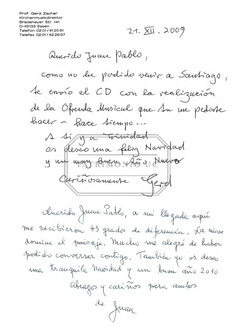 Prof. Gerd Zacher
Kirchenmusikdirektor
21. XII. 2009
Querido Juan Pablo,
como no he podido venir a Santiago,
te envío el CD con la realización
de la Ofrenda Musical que tu me pediste
hacer – hace tiempo...
A ti y a Trinidad
os deseo una feliz Navidad
y un muy buen Año Nuevo
Cariñosamente Gerd
Querido Juan Pablo, a mi llegada aquí
me recibieron 43 grado de diferencia. La nieve
domina el paisaje. Mucho me alegro de haber
podido conversar contigo. También yo os deseo
una tranquila Navidad y un buen año 2010
Abrazos y cariños para ambos
de Juan